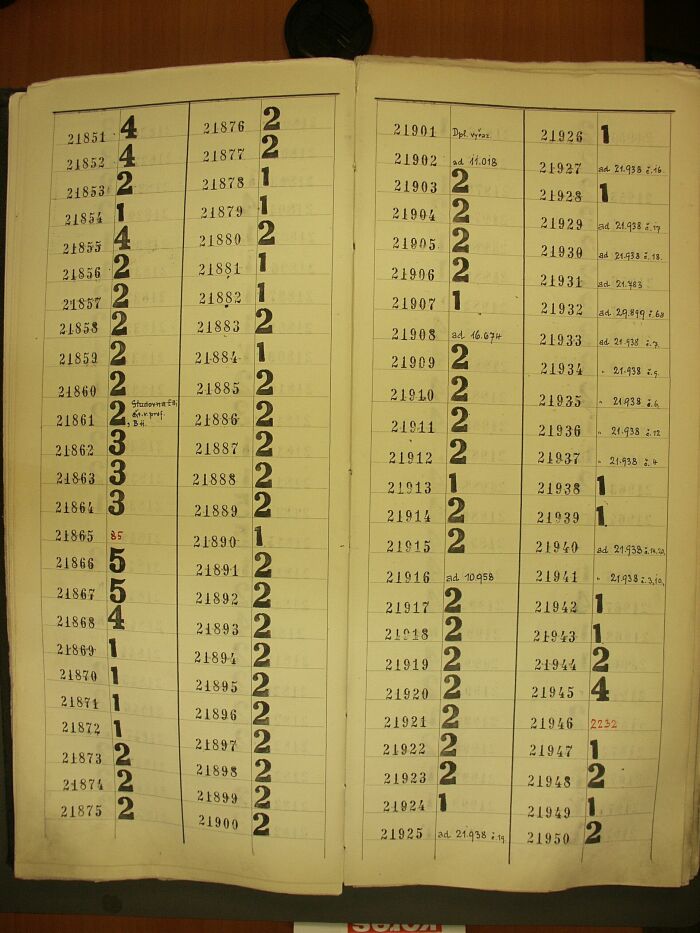 21851 4
21852 4
21853 2
21854 1
21855 4
21856 2
21857 2
21858 2
21859 2
21860 2
21861 2 Studovna
B H.
21862 3
21863 3
21864 3
21865 85
21866 5
21867 5
21868 4
21869 1
21870 1
21871 1
21872 1
21873 2
21874 2
21875 2
21876 2
21877 2
21878 1
21879 1
21880 2
21881 1
21882 1
21883 2
21884 1
21885 2
21886 2
21887 2
21888 2
21889 2
21890 1
21891 2
21892 2
21893 2
21894 2
21895 2
21896 2
21897 2
21898 2
21899 2
21900 2
21901 Dpl. vyřaz.
21902 ad 11.018
21903 2
21904 2
21905 2
21906 2
21907 1
21908 ad 16.674
21909 2
21910 2
21911 2
21912 2
21913 1
21914 2
21915 2
21916 ad 10.958
21917 2
21918 2
21919 2
21920 2
21921 2
21922 2
21923 2
21924 1
21925 ad 21.938 č.19
21926 1
21927 ad 21.938 č.16.
21928 1
21929 ad 21.938 č.17.
21930 ad 21.938 č.18.
21931 ad 21.783
21932 ad 29.899 č.68
21933 ad 21.938 č.7.
21934 " 21.938 č.5.
21935 " 21.938 č.6.
21936 " 21.938 č.12
21937 " 21.938 č.4
21938 1
21939 1
21940 ad 21.938 č.14.20.
21941 " 21.938 č.3,10,
21942 1
21943 1
21944 2
21945 4
21946 2232
21947 1
21948 2
21949 1
21950 2